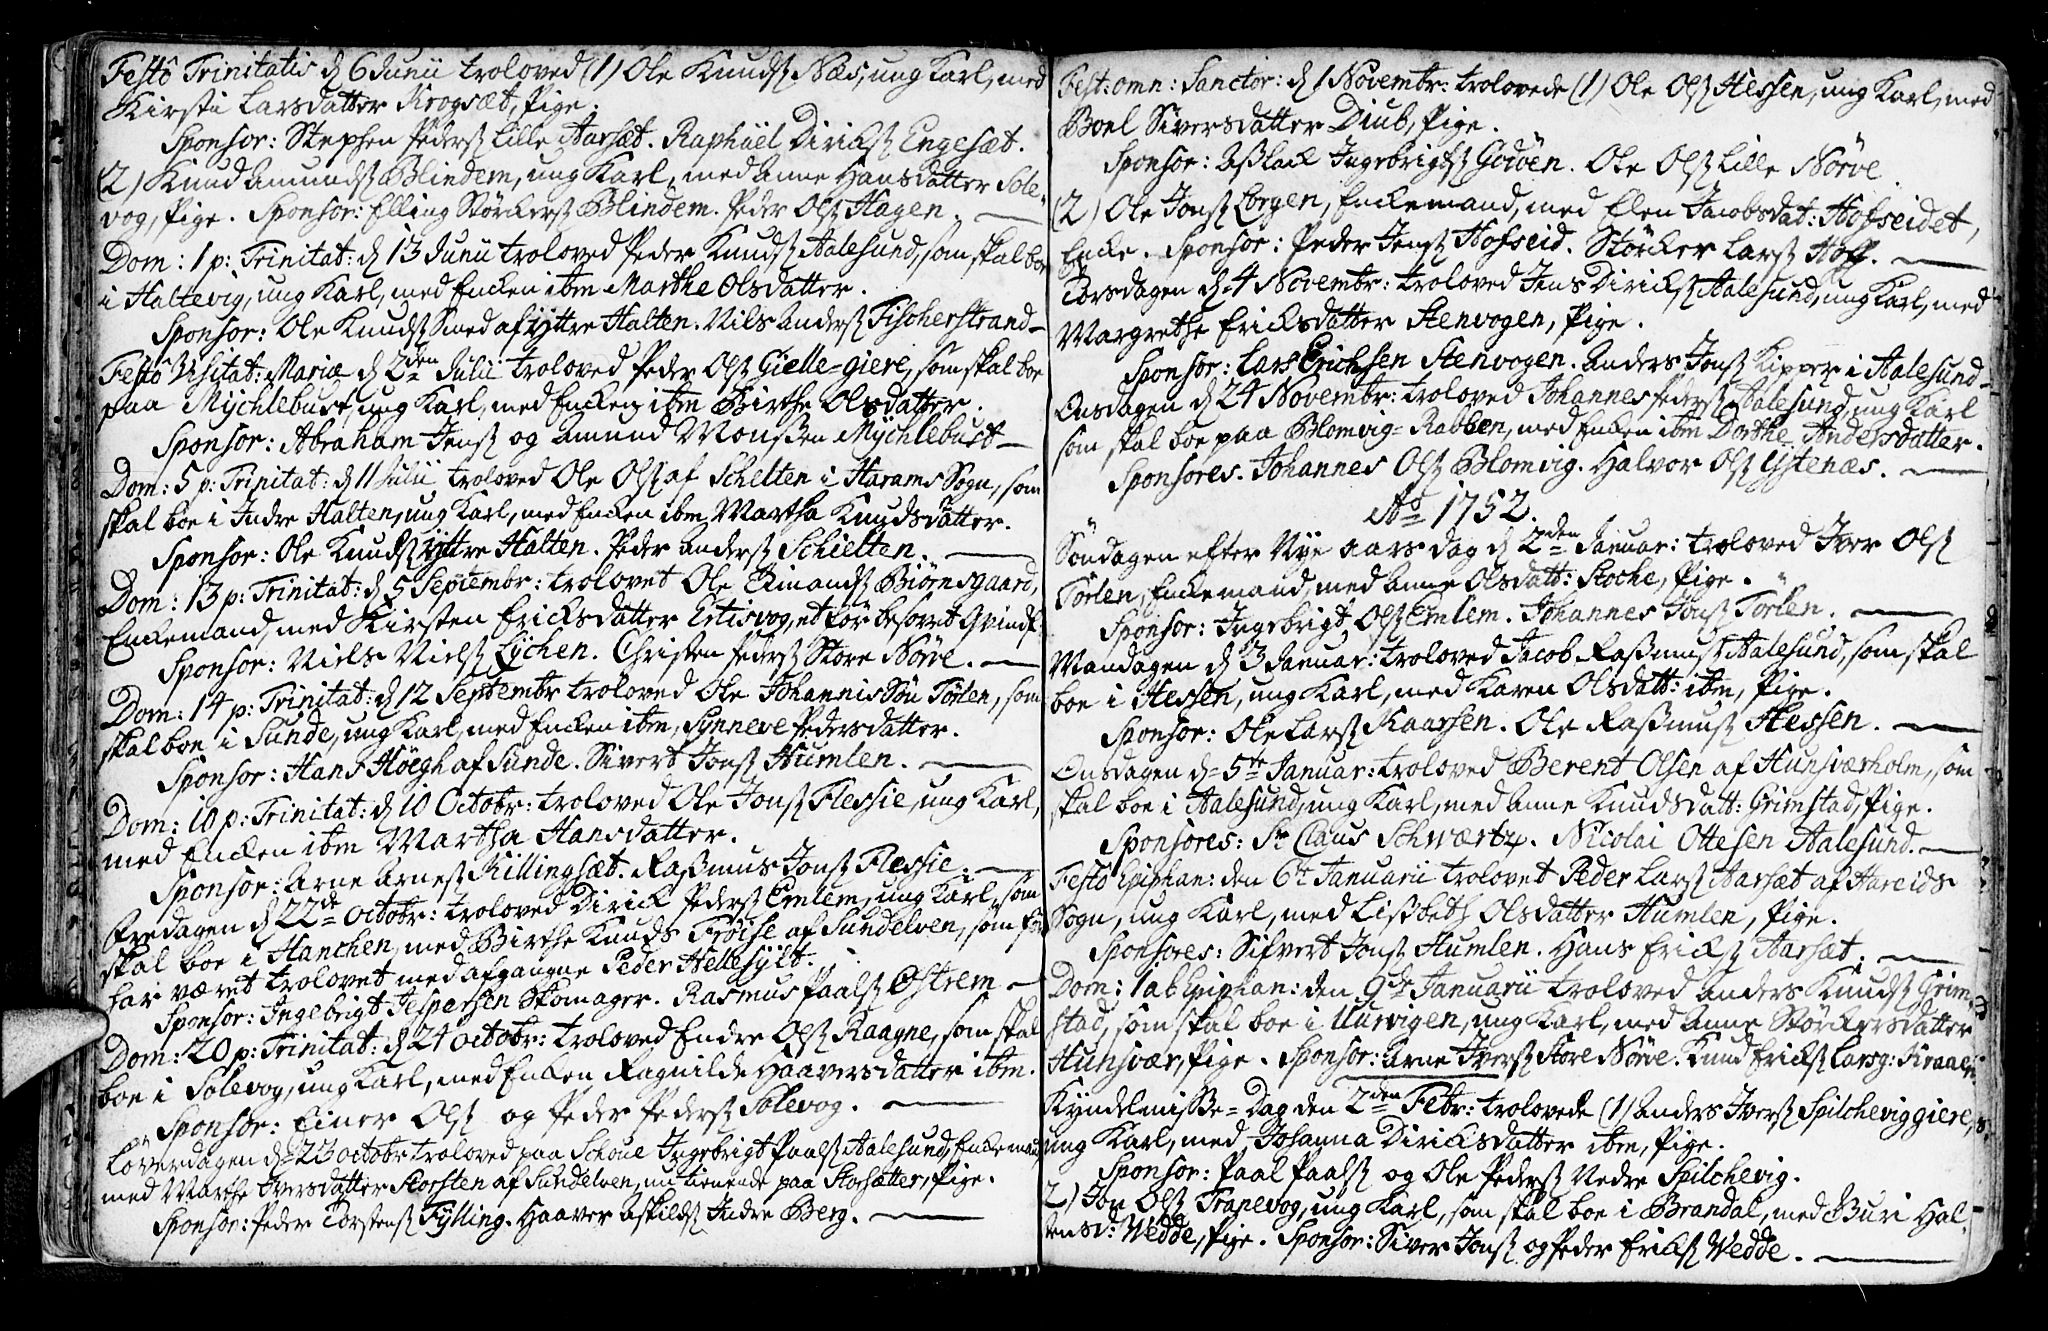 Festô Trinitatis d 6 Junii troloved (1) Ole Knudsß Næs, ung Karl, med
Kirsti Larsdatter Krogsæt, Pige.
Sponsor: Stephen Pedersß Lille Aarsæt. Raphäel Diriksß Engesæt.
(2) Knud Amundsß Blindem, ung Karl, med Anne Hansdatter Sole-
vog, Pige. Sponsor: Elling Störkersß Blindem. Peder Olsß Hagen.
Dom: 1 p: Trinitat: d 13 Junii troloved Peder Knudsß Aalesund, som skal boe
i Haltevig, ung Karl, med Encken ibm Marthe Olsdatter.
Sponsor: Ole Knudsß Smed af yttre Halten. Nils Andersß Fischerstrand
Festô Visitat: Mariæ d 2den Julii troloved Peder Olsß Gielle-giere, som skal boe
paa Mychlebust, ung Karl, med Encken ibm Birthe Olsdatter.
Sponsor: Abraham Jensß og Amund Monßen Mychlebust
Dom: 5 p: Trinitat: d 11 Julii troloved Ole Olsß af Schelten i Harams Sogn, som
skal boe i Indre Halten, ung Karl, med Encken ibm Martha Knudsdatter.
Sponsor: Ole Knudsß yttre Halten. Peder Andersß Schielten.
Dom: 13 p: Trinitat: d 5 Septembr: trolovet Ole Einandsß Biörnsgaard,
Enckemand, med Kirsten Ericksdatter Ertisvog, et för besovet Qvindf:
Sponsor: Niels Nielsß Lychen. Christen Pedersß Store Nörve.
Dom: 14 p: Trinitat: d 12 Septembr troloved Ole Johannis Sön Törlen, som
skal boe i Sunde, ung Karl, med Encken ibm, Synneve Pedersdatter.
Sponsor: Hans Höegh af Sunde. Sivert Jonsß Humlen.
Dom: 10 p: Trinitat: d 10 Octobr: troloved Ole Jonsß Flessie, ung Karl,
med Encken ibm Martha Hansdatter.
Sponsor: Arne Arnesß Killingsæt. Raßmus Jonsß Flessie.
Fredagen d 22de Octobr: troloved Dirick Pedersß Emlem, ung Karl, som
skal boe i Hanchen, med Birthe Knuds Fröise af Sundelven, som för
har været trolovet med afgangne Peder Hellesylt.
Sponsor: Ingebrigt Jespersen Skomager. Rasmus Paalsß Østrem
Dom: 20 p: Trinitat: d 24 Octobr: troloved Endre Olsß Raagne, som skal
boe i Solevog, ung Karl, med Encken Ragnilde Haaversdatter ibm.
Sponsor: Einer Olsß og Peder Pedersß Solevog.
Löverdagen d 23 Octobr troloved paa Schoue Ingebrigt Paalsß Aalesund, Enckemand,
med Marthe Iversdatter Storsten af Sundelven, nu tienende paa Storsætter, Pige.
Sponsor: Peder Torstensß Fylling. Haaver Askildsß Indre Berg.
Fest: omn: Sanctor: d 1 Novembr: trolovede (1) Ole Olsß Hessen, ung Karl, med
Boel Siversdatter Diub, Pige.
Sponsor: Aßlack Ingebrigtsß Godöen. Ole Olsß Lille Nörve
(2) Ole Jonsß Lorgen, Enckemand, med Elen Jacobsdat: Hofseidet,
Encke. Sponsor: Peder Jensß Hofseid. Störcker Larsß Hoff.
Torsdagen d 4 Novembr: troloved Jens Diricksß Aalesund, ung Karl, med
Margrethe Ericksdatter Stenvogen, Pige.
Sponsor: Lars Erichsen Stenvogen. Anders Jonsß Kipper i Aalesund
Onsdagen d 24 Novembr: troloved Johannes Pedersß Aalesund, ung Karl
som skal boe paa Blomvig-Rabben, med Encken ibm Dorthe Andersdatter.
Sponsores. Johannes Olsß Blomvig. Halvor Olsß Ystenæs.
Ao 1752.
Söndagen efter Nye aars dag d 2den Januar: troloved Iver Olsß
Törlen, Enckemand, med Anne Olsdatt: Stoche, Pige.
Sponsor: Ingebrigt Olsß Emlem. Johannes Jonsß Törlen.
Mandagen d 3 Januar: troloved Jacob Raßmusß Aalesund, som skal
boe i Hessen, ung Karl, med Karen Olsdatt: ibm, Pige.
Sponsor: Ole Larsß Kaarsen. Ole Raßmusß Hessen.
Onsdagen d 5te Januar: troloved Berent Olsen af Hunsværholm, som
skal boe i Aalesund, ung Karl, med Anne Knudsdatt: Grimstad, Pige.
Sponsores: Sr Claus Schwærtz. Nicolai Ottesen Aalesund.
Festô Epiphan: den 6te Januarii trolovet Peder Larsß Aarsæt af Hareids
Sogn, ung Karl, med Lisßbeth Olsdatter Humlen, Pige.
Sponsores: Sifvert Jonsß Humlen. Hans Ericksß Aarsæt.
Dom: 1 ab Epiphan: den 9de Januarii troloved Anders Knudsß Grim-
stad, som skal boe i Uurvigen, ung Karl, med Anne Störkersdatter
Hunsvær, Pige. Sponsor: Arne Iversß Store Nörve. Knud Ericksß Larsg: Kraae
Kyndelmisße-Dag den 2den Febr: trolovede (1) Anders Iversß Spilcheviggiere,
ung Karl, med Johanna Diricksdatter ibm, Pige.
Sponsor: Paal Paalsß og Ole Pedersß Nedre Spilchevig.
2) Jon Olsß Tranevog, ung Karl, som skal boe i Brandal, med Buri Hal-
tensd: Wedde, Pige. Sponsor: Siver Jonsß og Peder Ericksß Wedde.